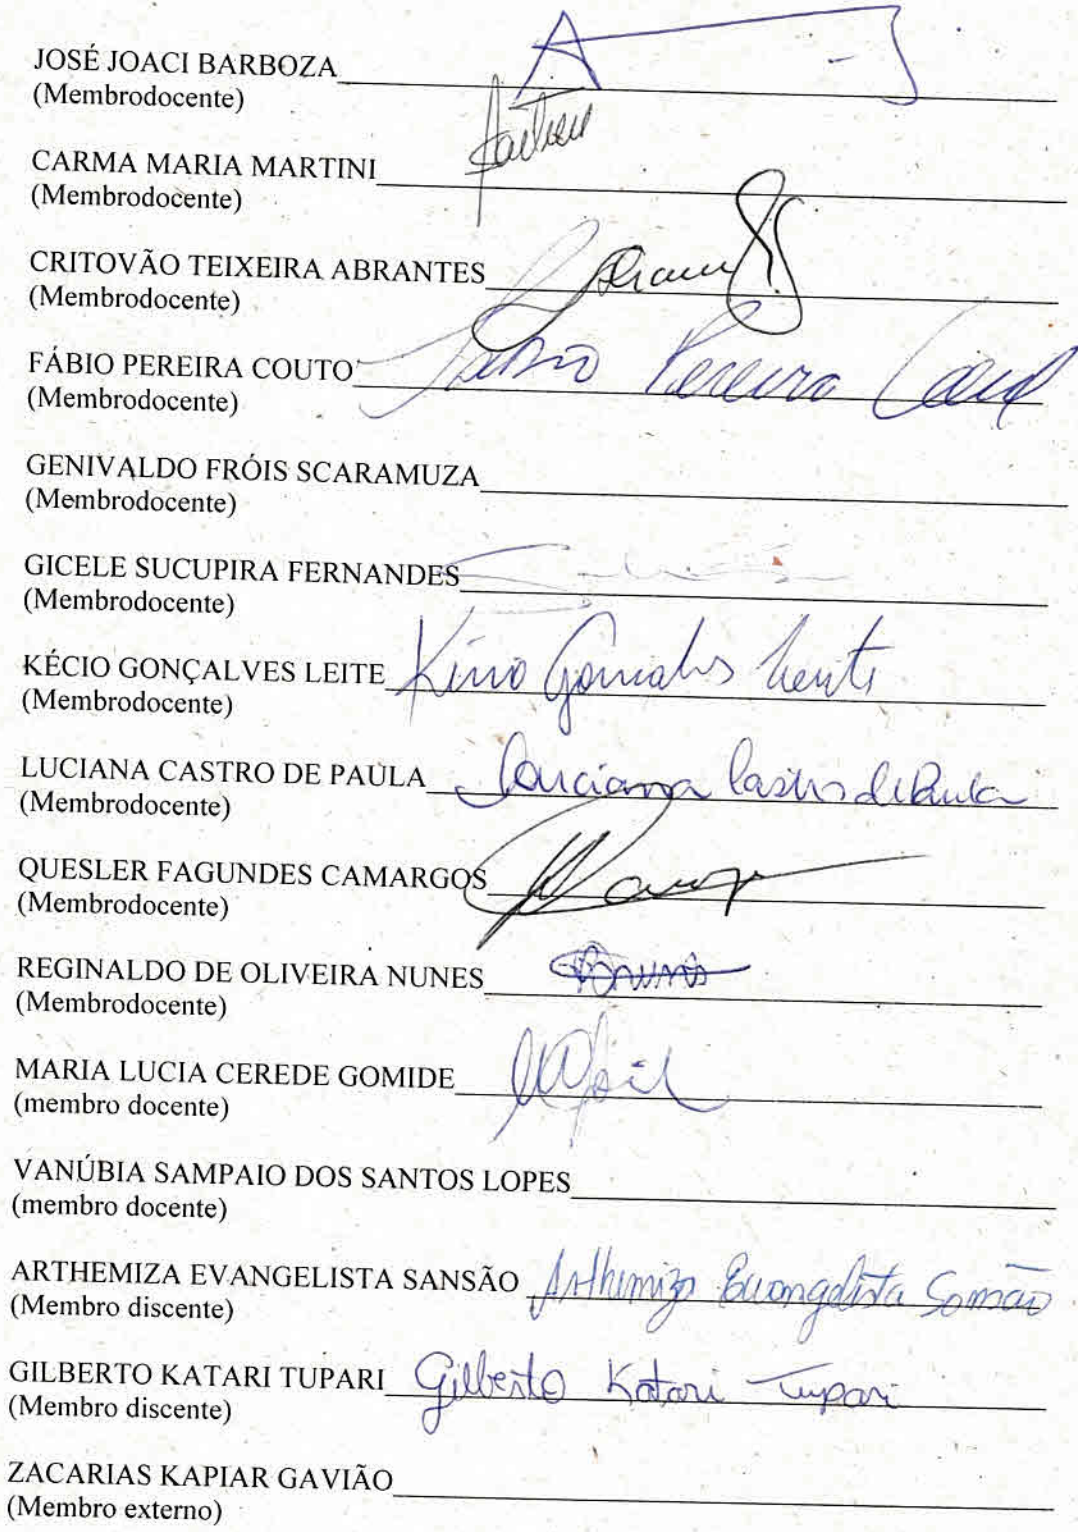 JOSÉ JOACI BARBOZA
(Membrodocente)
CARMA MARIA MARTINI
(Membrodocente)
CRITOVÃO TEIXEIRA ABRANTES
(Membrodocente)
FÁBIO PEREIRA COUTO Fábio Pereira Couto
(Membrodocente)
GENIVALDO FRÓIS SCARAMUZA
(Membrodocente)
GICELE SUCUPIRA FERNANDES
(Membrodocente)
KÉCIO GONÇALVES LEITE Kécio Gonçalves Leite
(Membrodocente)
LUCIANA CASTRO DE PAULA Luciana Castro de Paula
(Membrodocente)
QUESLER FAGUNDES CAMARGOS
(Membrodocente)
REGINALDO DE OLIVEIRA NUNES
(Membrodocente)
MARIA LUCIA CEREDE GOMIDE
(membro docente)
VANÚBIA SAMPAIO DOS SANTOS LOPES
(membro docente)
ARTHEMIZA EVANGELISTA SANSÃO Arthemiza Evangelista Sansão
(Membro discente)
GILBERTO KATARI TUPARI Gilberto Katari Tupari
(Membro discente)
ZACARIAS KAPIAR GAVIÃO
(Membro externo)